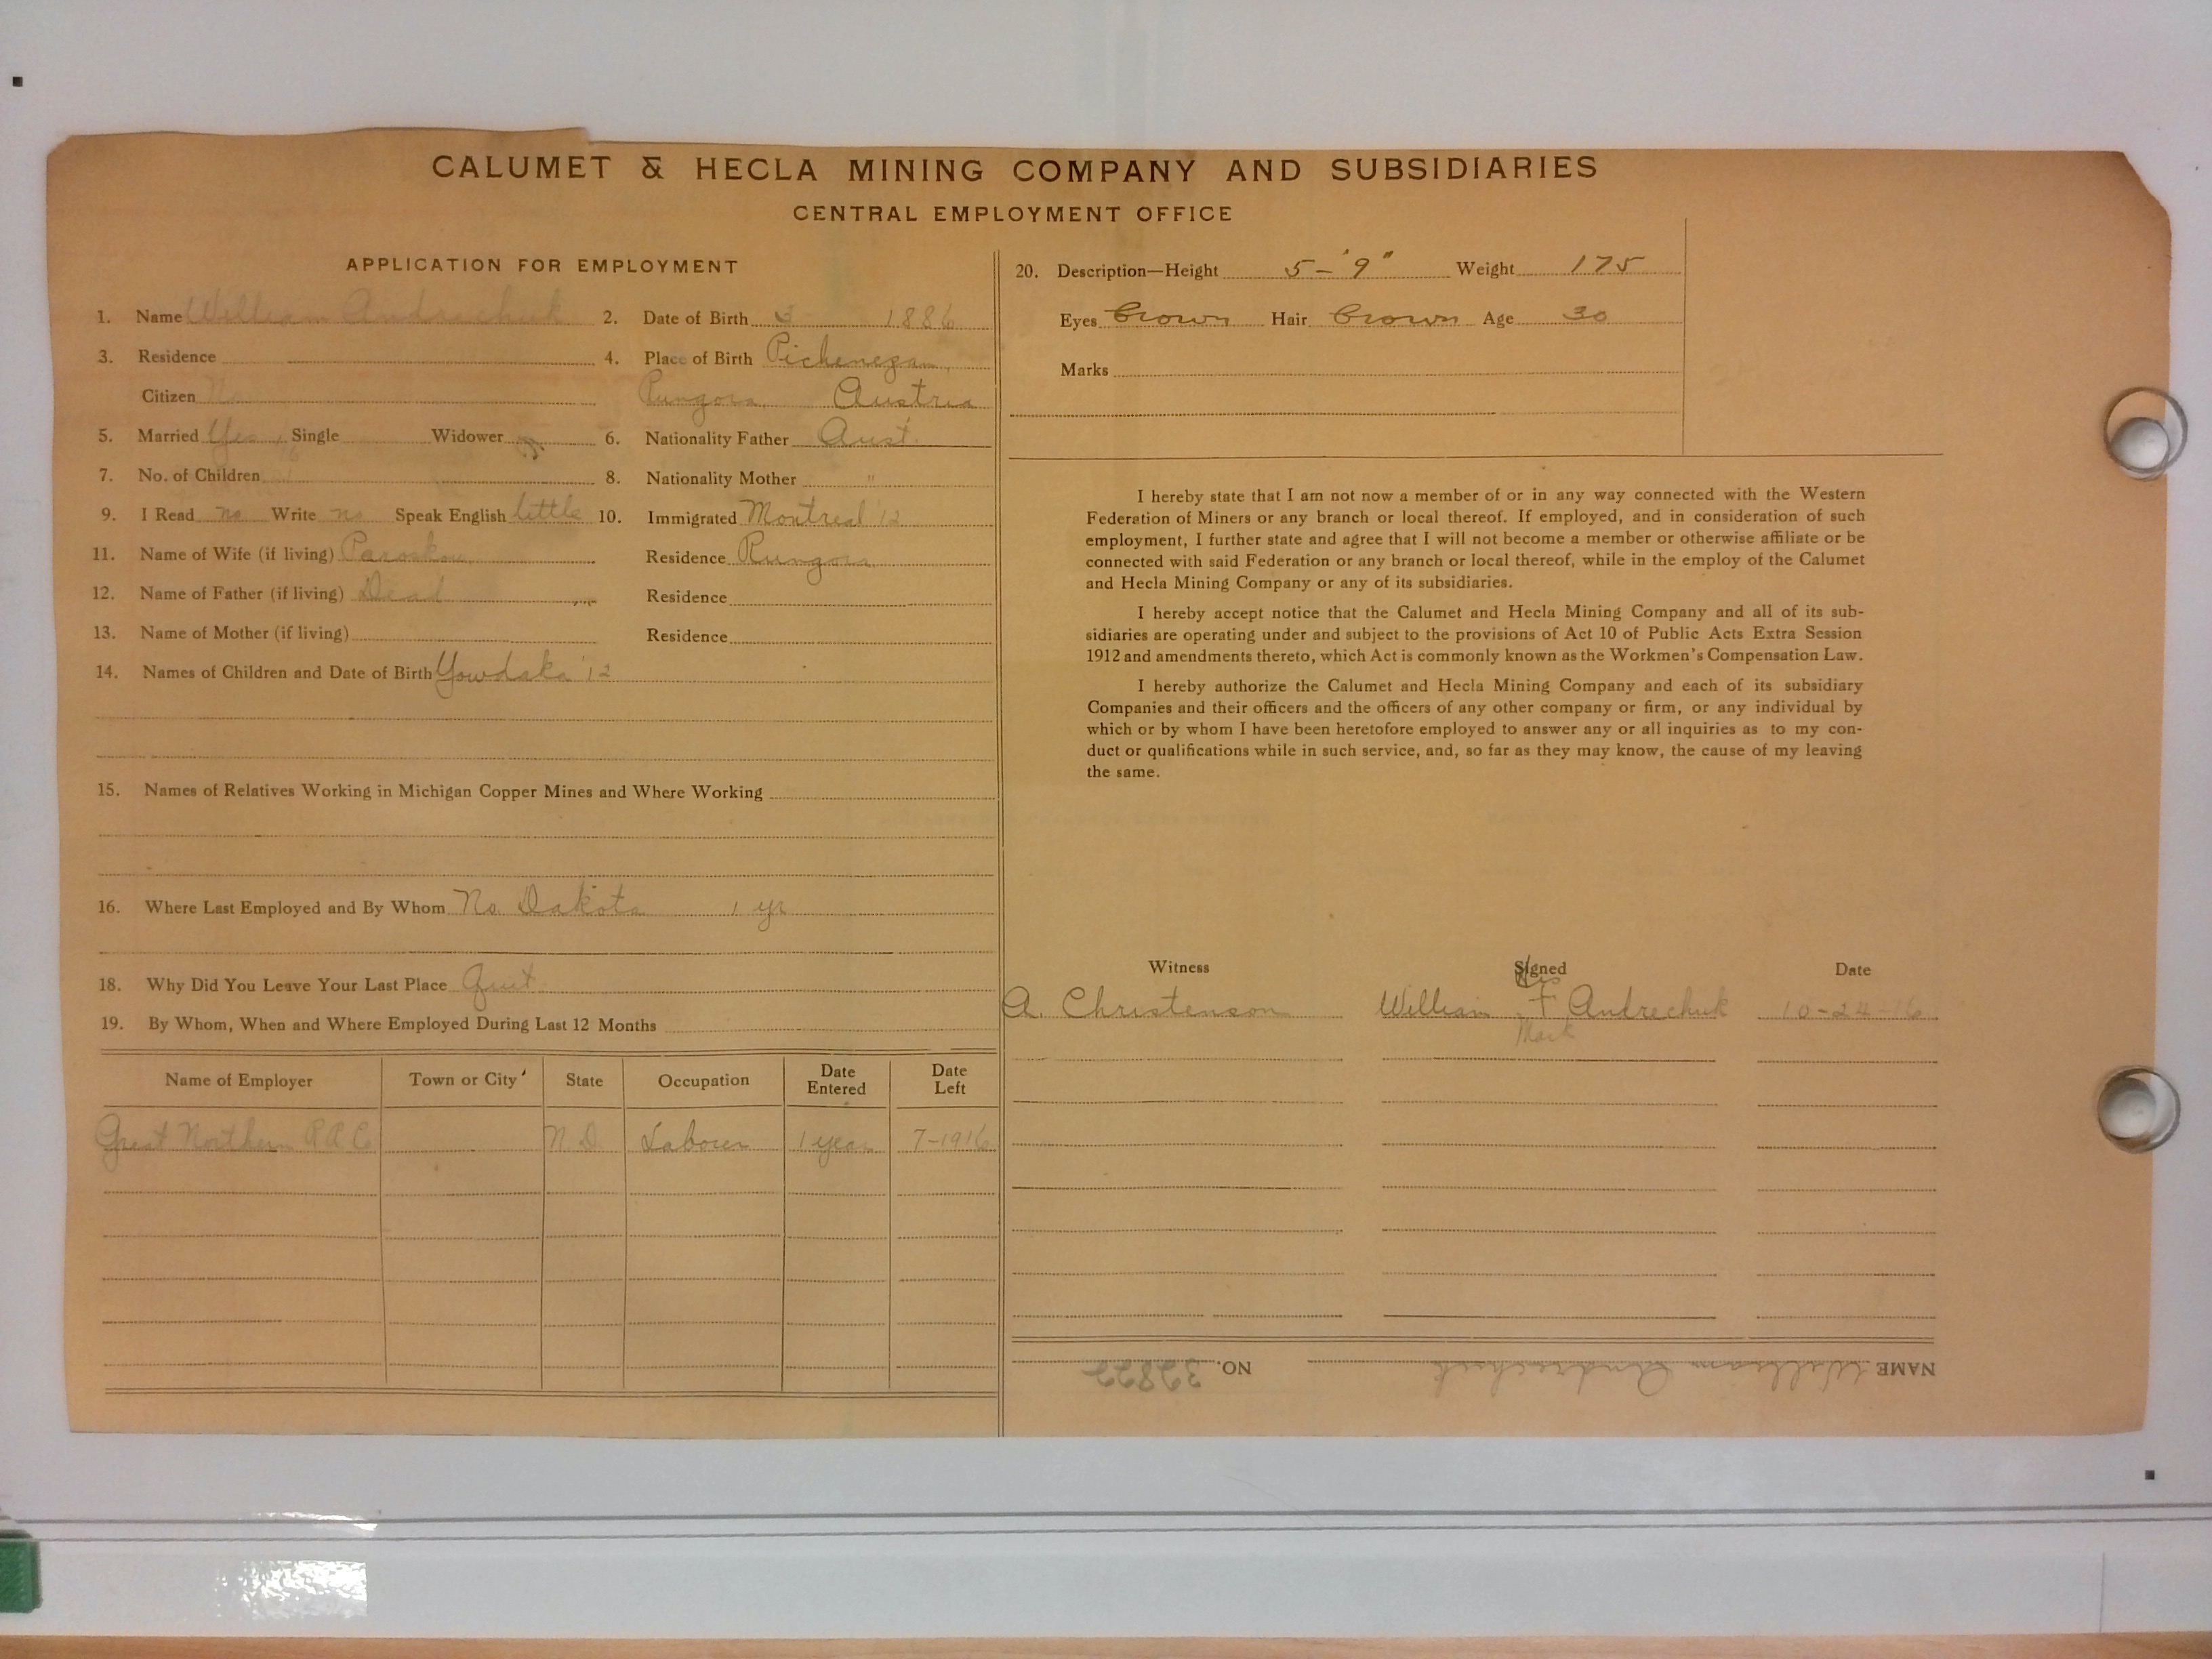 CALUMET & HECLA MINING COMPANY AND SUBSIDIARIES
CENTRAL EMPLOYMENT OFFICE
APPLICATION FOR EMPLOYMENT
1. Name William Andrechuk 2. Date of Birth 1886
3. Residence 4. Place of Birth Pichenezan
Citizen No Rungora Austria
5. Married Yes, Single Widower 6. Nationality Father Aust.
7. No. of Children 8. Nationality Mother "
9. I Read no Write no Speak English little 10. Immigrated Montreal '12
11. Name of Wife (if living) Residence Rungora
12. Name of Father (if living) Dead Residence
13. Name of Mother (if living) Residence
14. Names of Children and Date of Birth Yowdaka '12
15. Names of Relatives Working in Michigan Copper Mines and Where Working
16. Where Last Employed and By Whom No Dakota 1 yr
18. Why Did You Leave Your Last Place Quit
19. By Whom, When and Where Employed During Last 12 Months
Name of Employer Town or City State Occupation Date Entered Date Left
Great Northern R R Co N. D. Labourer 1 year 7-1916
20. Description—Height 5-'9" Weight 175
Eyes Brown Hair Brown Age 30
Marks
I hereby state that I am not now a member of or in any way connected with the Western
Federation of Miners or any branch or local thereof. If employed, and in consideration of such
employment, I further state and agree that I will not become a member or otherwise affiliate or be
connected with said Federation or any branch or local thereof, while in the employ of the Calumet
and Hecla Mining Company or any of its subsidiaries.
I hereby accept notice that the Calumet and Hecla Mining Company and all of its sub-
sidiaries are operating under and subject to the provisions of Act 10 of Public Acts Extra Session
1912 and amendments thereto, which Act is commonly known as the Workmen's Compensation Law.
I hereby authorize the Calumet and Hecla Mining Company and each of its subsidiary
Companies and their officers and the officers of any other company or firm, or any individual by
which or by whom I have been heretofore employed to answer any or all inquiries as to my con-
duct or qualifications while in such service, and, so far as they may know, the cause of my leaving
the same.
Witness Signed Date
His
A. Christenson William + Andrechuk 10-24-16
Mark
NAME William Andrechuk NO. 32822